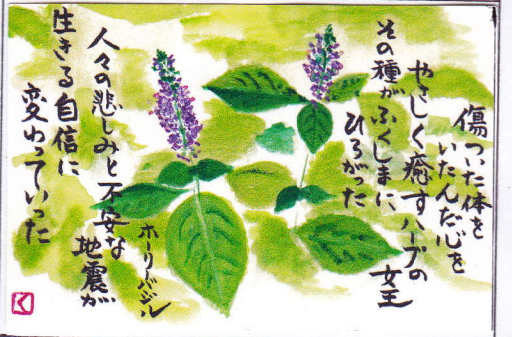 傷ついた体を
いたんだ心を
やさしく癒すハーブの
女王
その種がふくしまに
ひろがった
ホーリーバジル
人々の悲しみと不安な
地震が
生きる自信に
変わっていった